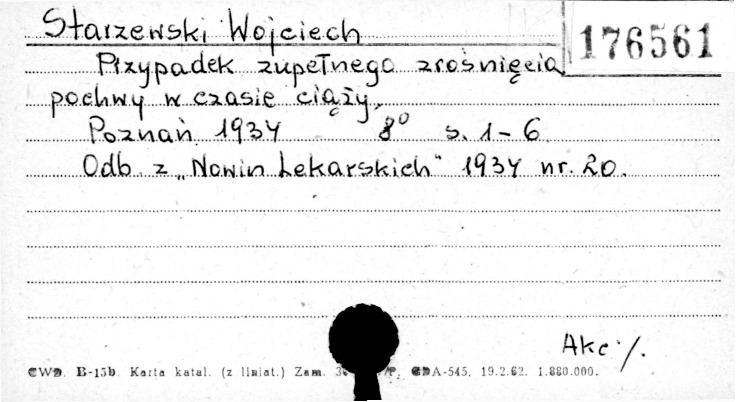 Starzewski Wojciech
176561
Przypadek zupełnego zrośnięcia
pochwy w czasie ciąży.
Poznań 1934 8° s. 1-6
Odb. z „Nowin Lekarskich" 1934 nr. 20.
Akc ./.
CWD. B-15b. Karta katal. (z liniat.) Zam. GDA-545, 19.2.62. 1.880.000.